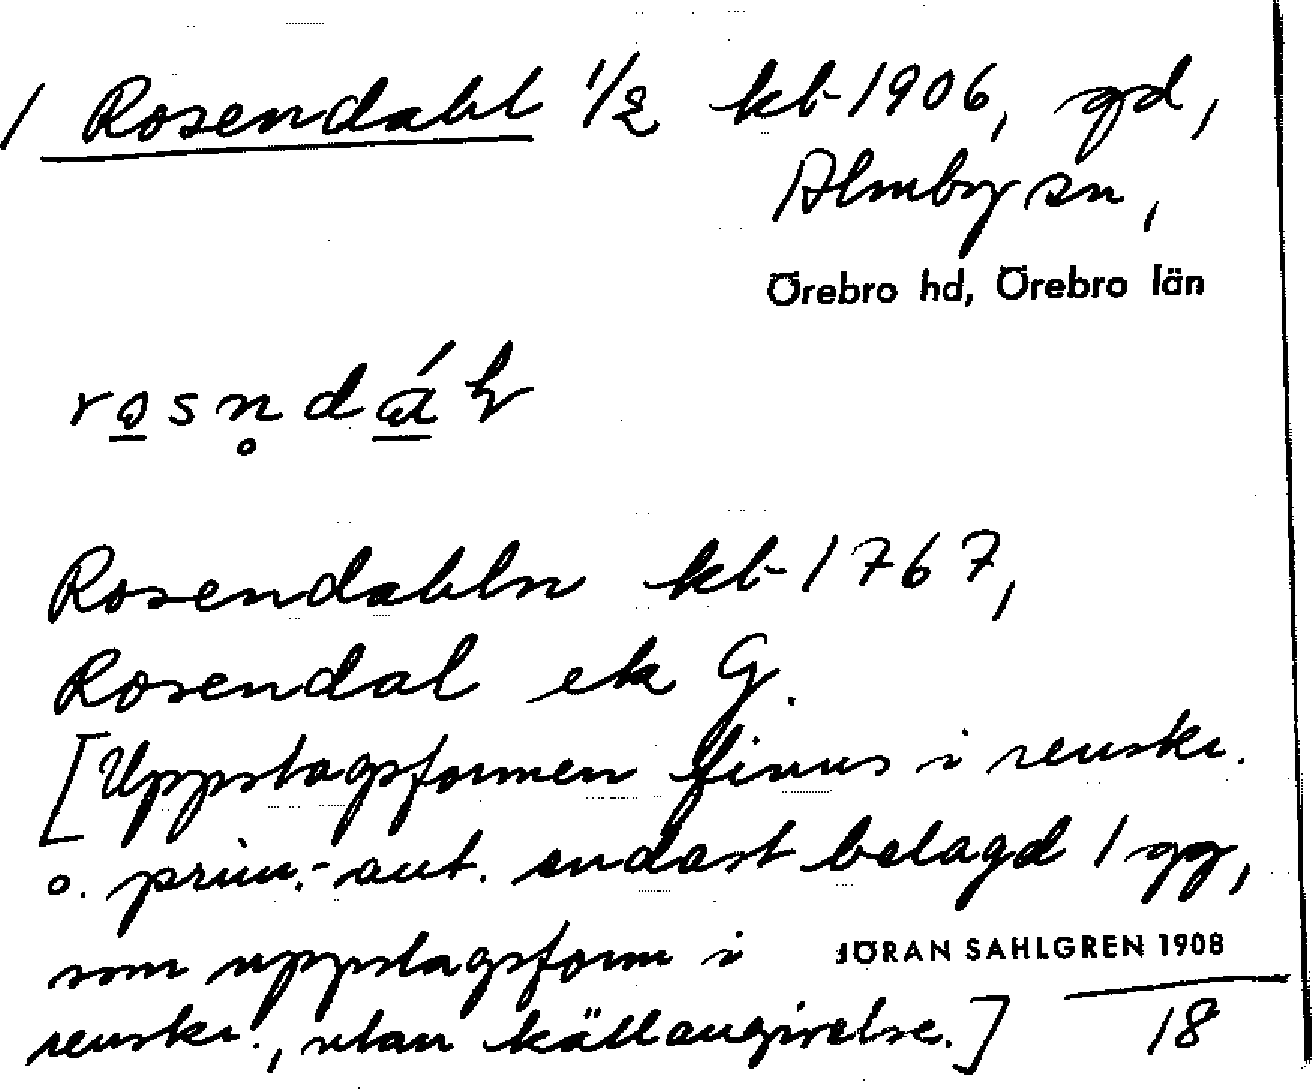 1 Rosendahl 1/2 kb 1906, gd,
Almby sn,
Örebro hd, Örebro län
rosn̥dál
Rosendahln kb 1767,
Rosendal ek G.
[Uppslagsformen finns i renskr.
o. prim.-ant. endast belagd 1 gg,
som uppslagsform i
JÖRAN SAHLGREN 1908
renskr., utan källangivelse.]
18